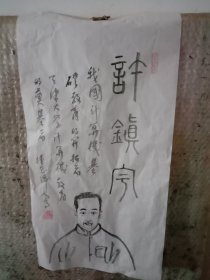 許鎮宇
我國計算機基
礎教育的開拓者
天津大學計算機教育
的奠基者